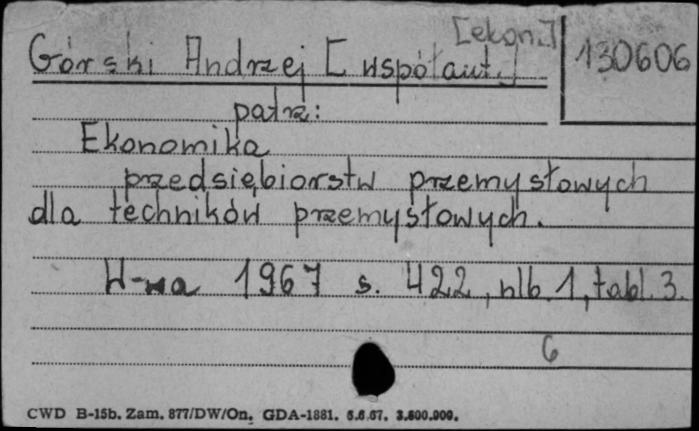 [ekon.]
Górski Andrzej [współaut.]
130606
patrz:
Ekonomika
przedsiębiorstw przemysłowych
dla techników przemysłowych.
W-wa 1967 s. 422, nlb. 1, tabl. 3.
6
CWD B-15b. Zam. 877/DW/On, GDA-1881. 5.6.67. 3.800.000.